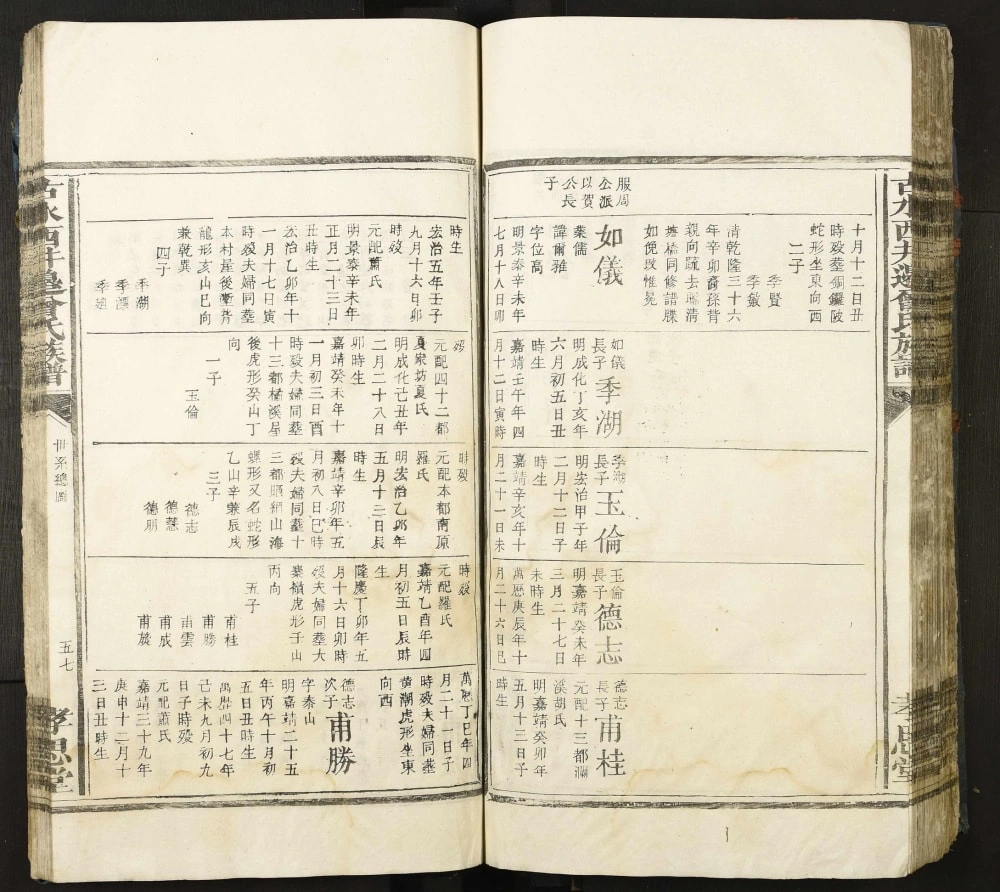 十月十二日丑
時歿葬銅鑼陂
蛇形坐東向西
二子
季賢
季敏
清乾隆三十六
年辛卯裔孫背
親向疏去聯清
塘橋同修譜牒
如儀故惟冕
服周
公派
以賀
公長
子
如儀
業儒
諱爾雅
字位高
明景泰辛未年
七月十八日卯
如儀
長子
季湖
明成化丁亥年
六月初五日丑
時生
嘉靖壬午年四
月十二日寅時
季湖
長子
玉倫
明宏治甲子年
二月十二日子
時生
嘉靖辛亥年十
月二十一日未
玉倫
長子
德志
明嘉靖癸未年
三月二十七日
未時生
萬歷庚辰年十
月二十六日巳
德志
長子
甫桂
元配十三都瀾
溪胡氏
明嘉靖癸卯年
五月十三日子
時生
時生
宏治五年壬子
九月十六日卯
時歿
元配蕭氏
明景泰辛未年
正月二十三日
丑時生
宏治乙卯年十
一月十七日寅
時歿夫婦同葬
本村屋後衝背
龍形亥山巳向
兼乾巽
四子
季湖
季漂
歿
元配四十二都
夏家坊夏氏
明成化己丑年
二月二十八日
卯時生
嘉靖癸未年十
一月初三日酉
時歿夫婦同葬
十三都橘溪星
後虎形癸山丁
向
一子
玉倫
時歿
元配本都南原
羅氏
明宏治乙卯年
五月十三日辰
時生
嘉靖辛卯年五
月初八日巳時
歿夫婦同葬十
三都晒網山海
螺形又名蛇形
乙山辛兼辰戌
三子
德志
德慧
德朋
時歿
元配羅氏
嘉靖乙酉年四
月初五日辰時
生
隆慶丁卯年五
月十六日卯時
歿夫婦同葬大
秦嶺虎形壬山
丙向
五子
甫桂
甫勝
甫雲
甫成
甫發
萬歷丁巳年四
月二十一日子
時歿夫婦同葬
黄潮虎形坐東
向西
德志
次子
甫勝
字泰山
明嘉靖二十五
年丙午十月初
五日丑時生
萬歷四十七年
己未九月初九
日子時歿
元配蕭氏
嘉靖三十九年
庚申十二月十
三日丑時生
古水西井邊曾氏族譜
世系總圖
五七
孝思堂